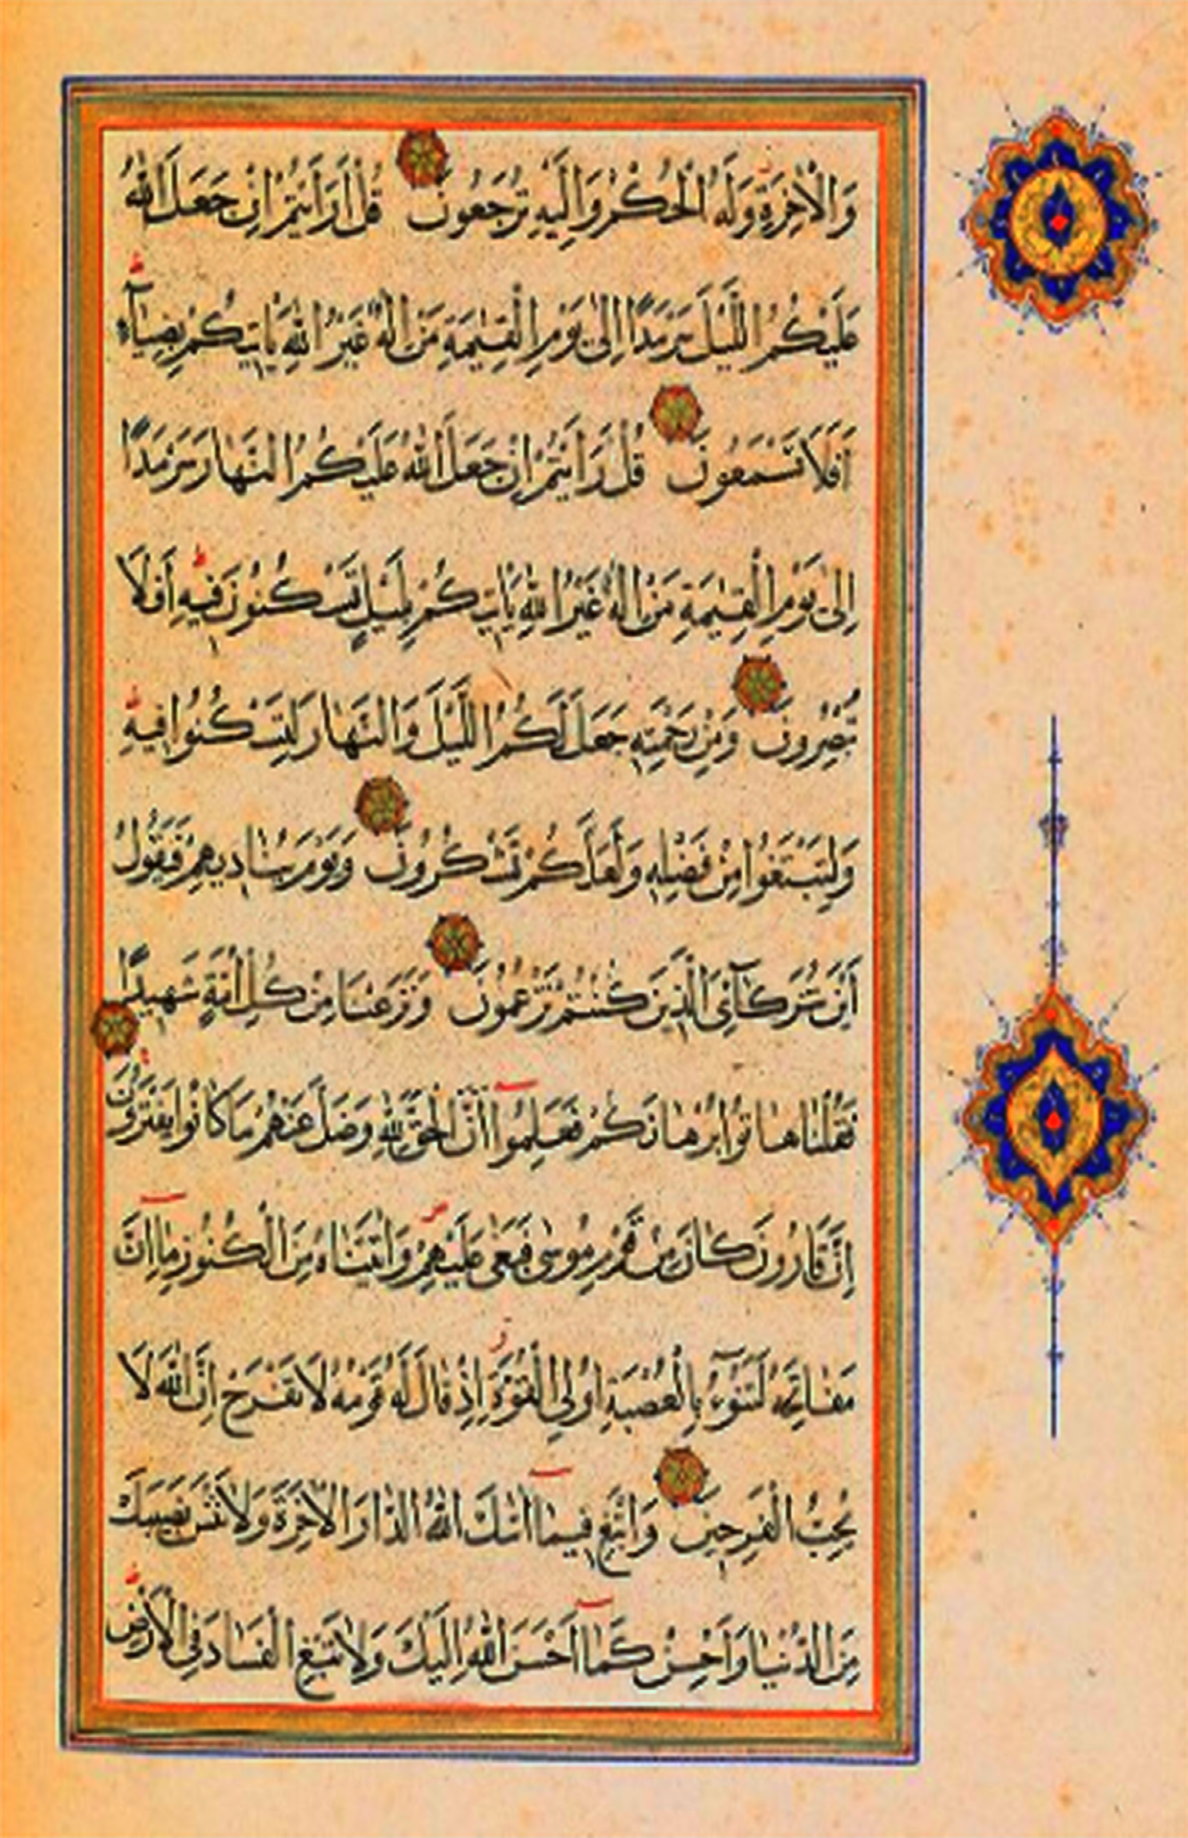 وَالْاٰخِرَةِ وَلَهُ الْحُكْمُ وَاِلَيْهِ تُرْجَعُونَ قُلْ اَرَاَيْتُمْ اِنْ جَعَلَ اللّٰهُ
عَلَيْكُمُ اللَّيْلَ سَرْمَدًا اِلٰى يَوْمِ الْقِيٰمَةِ مَنْ اِلٰهٌ غَيْرُ اللّٰهِ يَاْتِيكُمْ بِضِيَآءٍ
اَفَلَا تَسْمَعُونَ قُلْ اَرَاَيْتُمْ اِنْ جَعَلَ اللّٰهُ عَلَيْكُمُ النَّهَارَ سَرْمَدًا
اِلٰى يَوْمِ الْقِيٰمَةِ مَنْ اِلٰهٌ غَيْرُ اللّٰهِ يَاْتِيكُمْ بِلَيْلٍ تَسْكُنُونَ فِيهِ اَفَلَا
تُبْصِرُونَ وَمِنْ رَحْمَتِهِ جَعَلَ لَكُمُ اللَّيْلَ وَالنَّهَارَ لِتَسْكُنُوا فِيهِ
وَلِتَبْتَغُوا مِنْ فَضْلِهِ وَلَعَلَّكُمْ تَشْكُرُونَ وَيَوْمَ يُنَادِيهِمْ فَيَقُولُ
اَيْنَ شُرَكَآءِىَ الَّذِينَ كُنْتُمْ تَزْعُمُونَ وَنَزَعْنَا مِنْ كُلِّ اُمَّةٍ شَهِيدًا
فَقُلْنَا هَاتُوا بُرْهَانَكُمْ فَعَلِمُوا اَنَّ الْحَقَّ لِلّٰهِ وَضَلَّ عَنْهُمْ مَا كَانُوا يَفْتَرُونَ
اِنَّ قَارُونَ كَانَ مِنْ قَوْمِ مُوسٰى فَبَغٰى عَلَيْهِمْ وَاٰتَيْنَاهُ مِنَ الْكُنُوزِ مَا اِنَّ
مَفَاتِحَهُ لَتَنُوٓءُ بِالْعُصْبَةِ اُولِى الْقُوَّةِ اِذْ قَالَ لَهُ قَوْمُهُ لَا تَفْرَحْ اِنَّ اللّٰهَ لَا
يُحِبُّ الْفَرِحِينَ وَابْتَغِ فِيمَا اٰتٰىكَ اللّٰهُ الدَّارَ الْاٰخِرَةَ وَلَا تَنْسَ نَصِيبَكَ
مِنَ الدُّنْيَا وَاَحْسِنْ كَمَا اَحْسَنَ اللّٰهُ اِلَيْكَ وَلَا تَبْغِ الْفَسَادَ فِى الْاَرْضِ